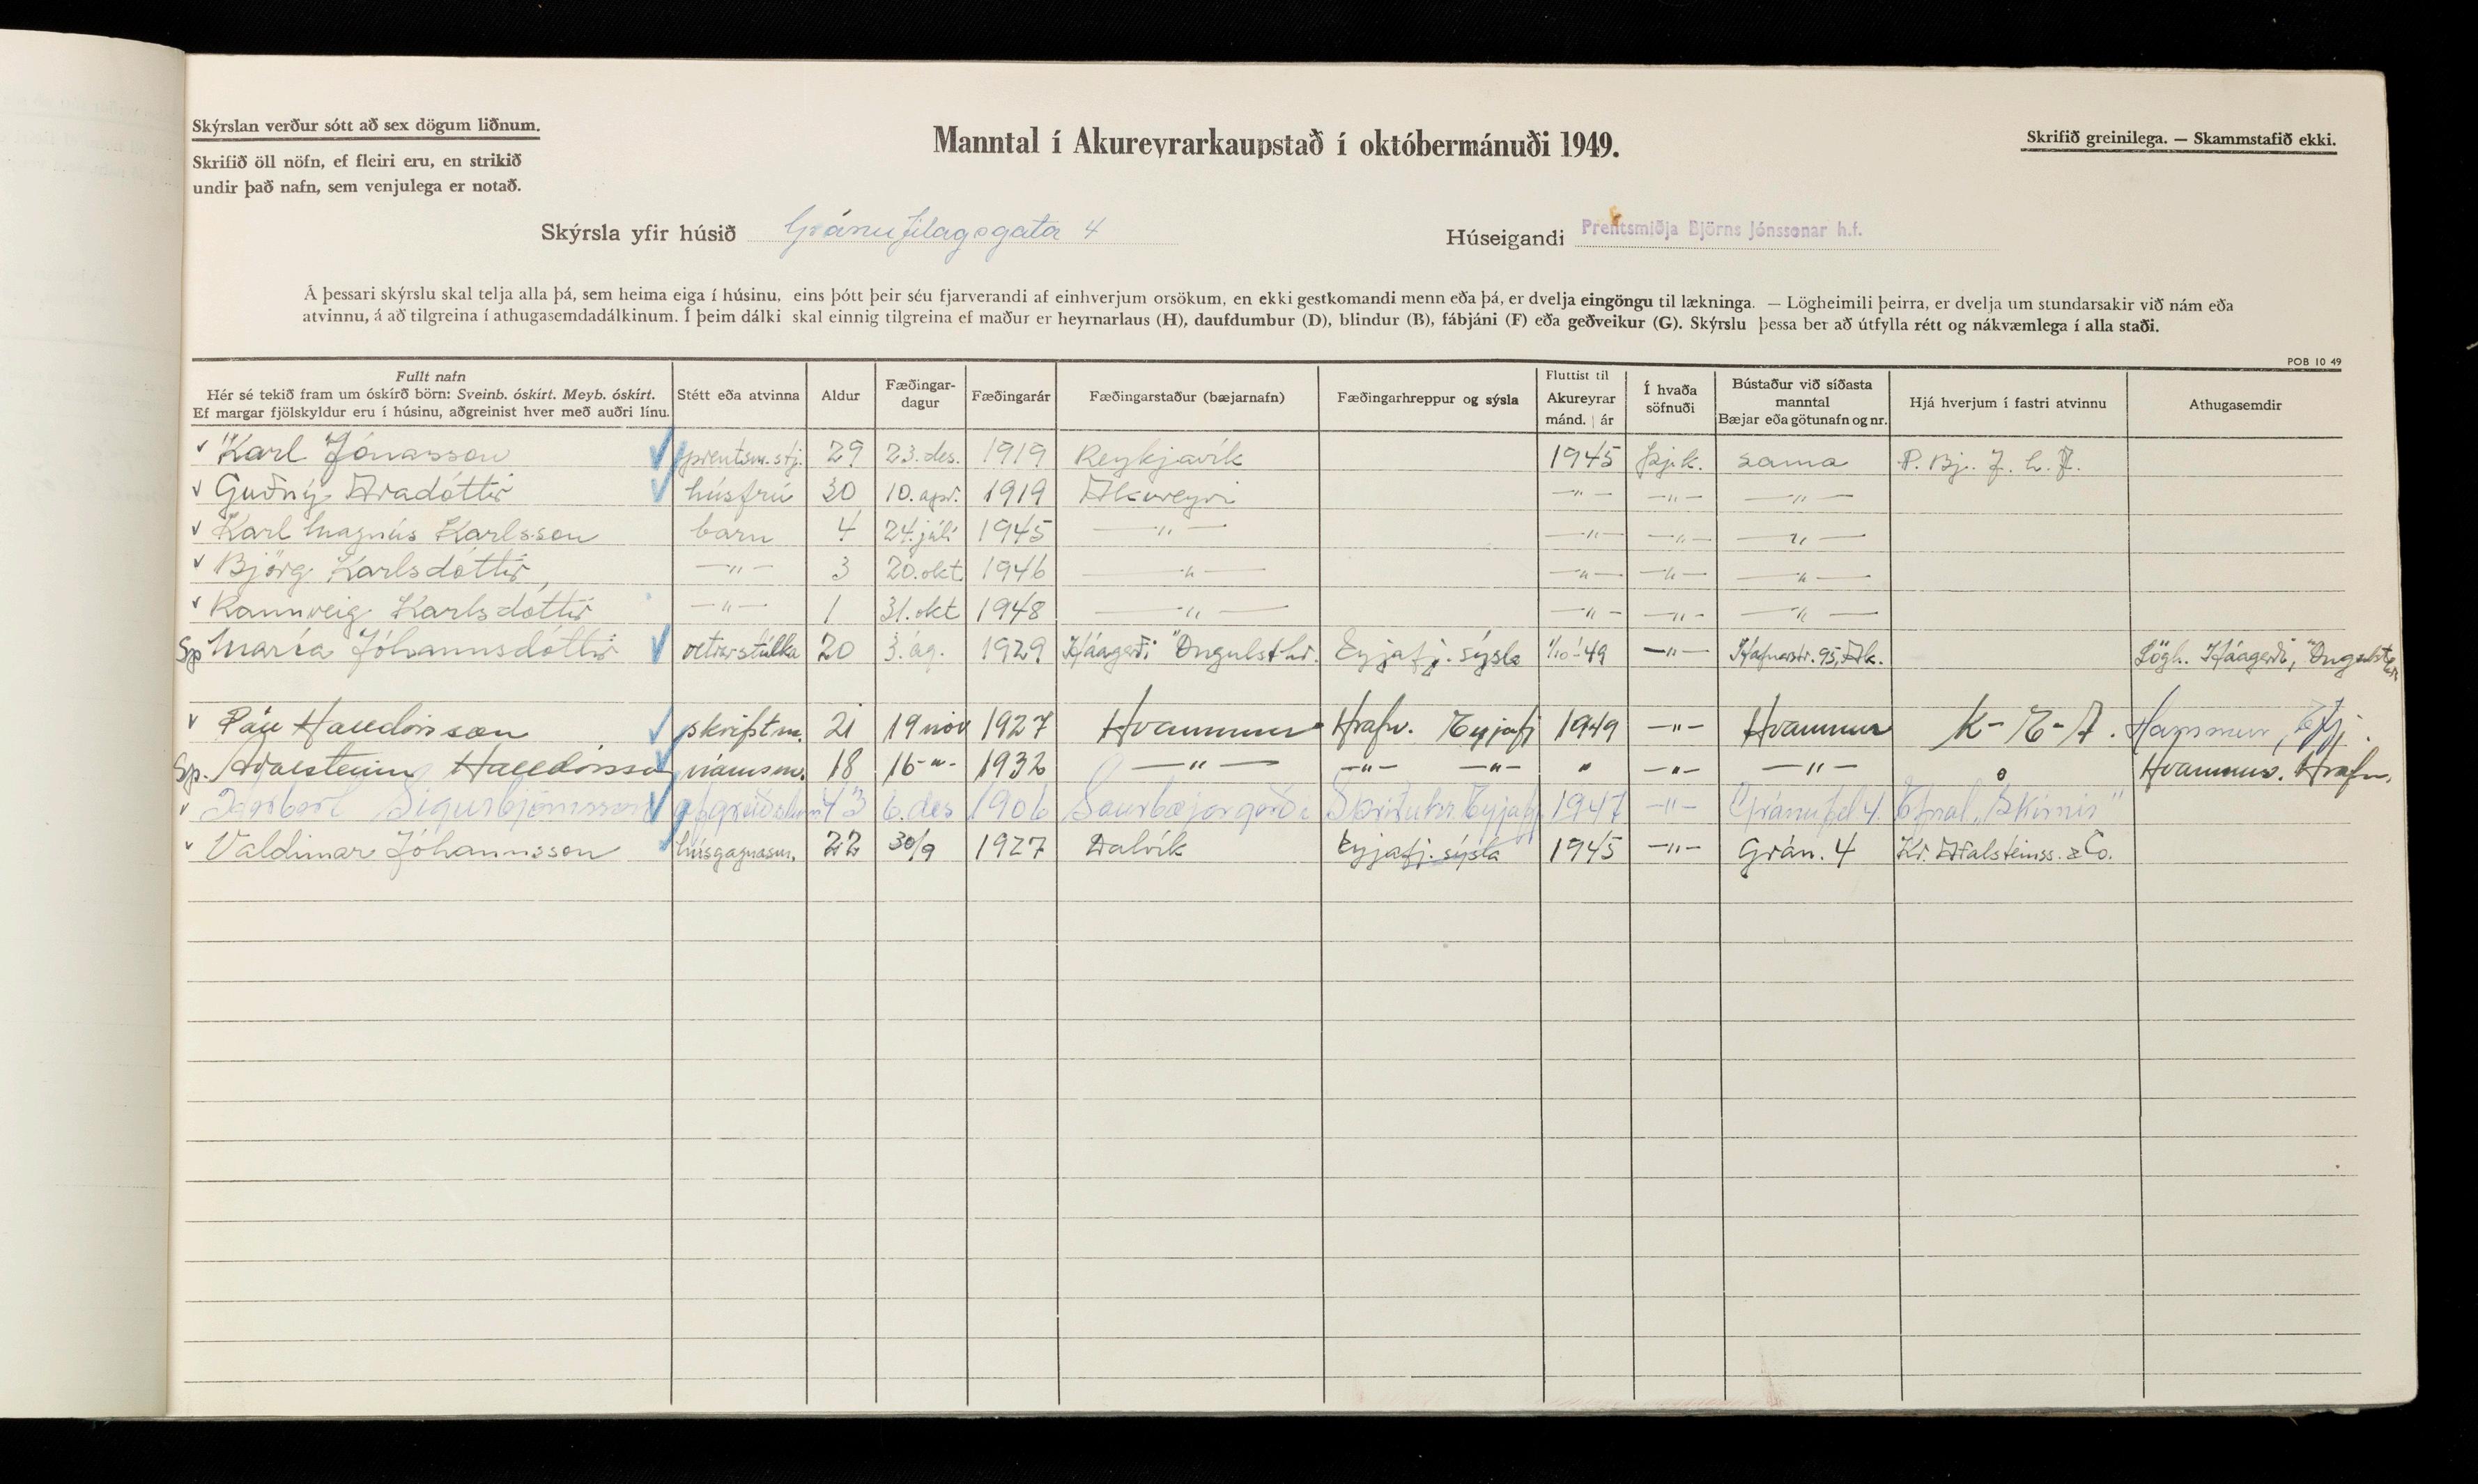 Skýrslan verður sótt að sex dögum liðnum.
Skrifið öll nöfn, ef fleiri eru, en strikið
undir það nafn, sem venjulega er notað.
Manntal í Akureyrarkaupstað í októbermánuði 1949.
Skrifið greinilega. — Skammstafið ekki.
Skýrsla yfir húsið Gránufélagsgata 4
Húseigandi Prentsmiðja Björns Jónssonar h.f.
Á þessari skýrslu skal telja alla þá, sem heima eiga í húsinu, eins þótt þeir séu fjarverandi af einhverjum orsökum, en ekki gestkomandi menn eða þá, er dvelja eingöngu til lækninga. — Lögheimili þeirra, er dvelja um stundarsakir við nám eða
atvinnu, á að tilgreina í athugasemdadálkinum. Í þeim dálki skal einnig tilgreina ef maður er heyrnarlaus (H), daufdumbur (D), blindur (B), fábjáni (F) eða geðveikur (G). Skýrslu þessa ber að útfylla rétt og nákvæmlega í alla staði.
POB 10 49
Fullt nafn
Hér sé tekið fram um óskírð börn: Sveinb. óskírt. Meyb. óskírt.
Ef margar fjölskyldur eru í húsinu, aðgreinist hver með auðri línu.
Stétt eða atvinna
Aldur
Fæðingar-
dagur
Fæðingarár
Fæðingarstaður (bæjarnafn)
Fæðingarhreppur og sýsla
Fluttist til
Akureyrar
mánd. | ár
Í hvaða
söfnuði
Bústaður við síðasta
manntal
Bæjar eða götunafn og nr.
Hjá hverjum í fastri atvinnu
Athugasemdir
v Karl Jónasson prentsm.stj. 29 23. des. 1919 Reykjavík 1945 Þjk. sama P. Bj. J. h. f.
v Guðný Aradóttir húsfrú 30 10. apr. 1919 Akureyri —"— —"— —"—
v Karl Magnús Karlsson barn 4 24. júlí 1945 —"— —"— —"— —"—
v Björg Karlsdóttir —"— 3 20. okt 1946 —"— —"— —"— —"—
v Rannveig Karlsdóttir —"— 1 31. okt 1948 —"— —"— —"— —"—
Sp María Jóhannsdóttir vetrarstúlka 20 3. ág. 1929 Háagerði Öngulst.hr. Eyjafj. sýsla 1/10-49 —"— Hafnarstr. 95, Ak. Lögh. Háagerði,
v Páll Halldórsson skrifstm. 21 19 nóv 1927 Hvammur Hrafn. Eyjafj 1949 —"— Hvammur K-E-A.
Sp. Aðalsteinn Halldórsson námsm. 18 16 -"- 1932 —"— —"— —"— " —"— —"— Hvammur. Hrafn.
v Sigurbjörnsson 43 6. des 1906 Saurbæjargerði Skriðuhr. Eyjafj 1947 —"— Gránufél 4. Efnal. „Skírnir"
v Valdimar Jóhannsson húsgagnasm. 22 30/9 1927 Dalvík Eyjafj. sýsla 1945 —"— Grán. 4 Kr. Aðalsteinss. & Co.